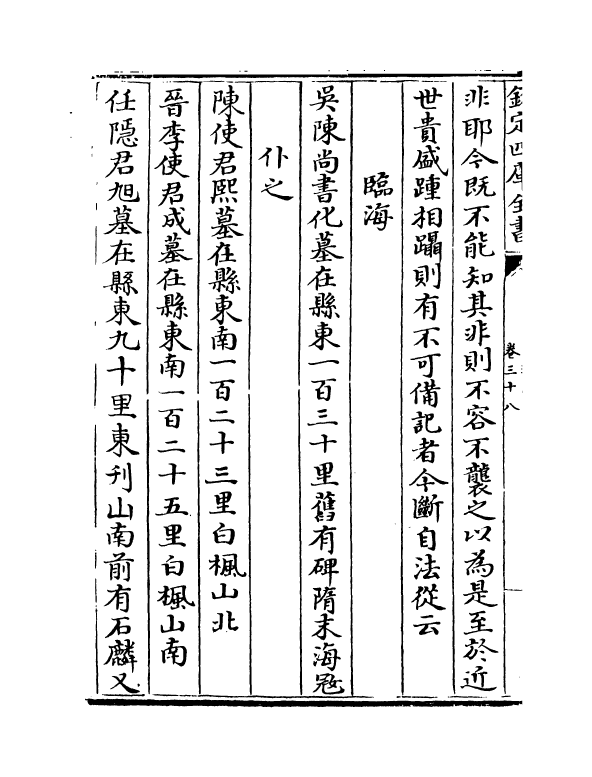 欽定四庫全書
卷三十八
非耶今既不能知其非則不容不襲之以為是至於近
世貴盛踵相躡則有不可備記者今斷自法從云
臨海
吳陳尚書化墓在縣東一百三十里舊有碑隋末海㓂
仆之
陳使君熙墓在縣東南一百二十三里白楓山北
晉李使君成墓在縣東南一百二十五里白楓山南
任隠君旭墓在縣東九十里東刋山南前有石麟又